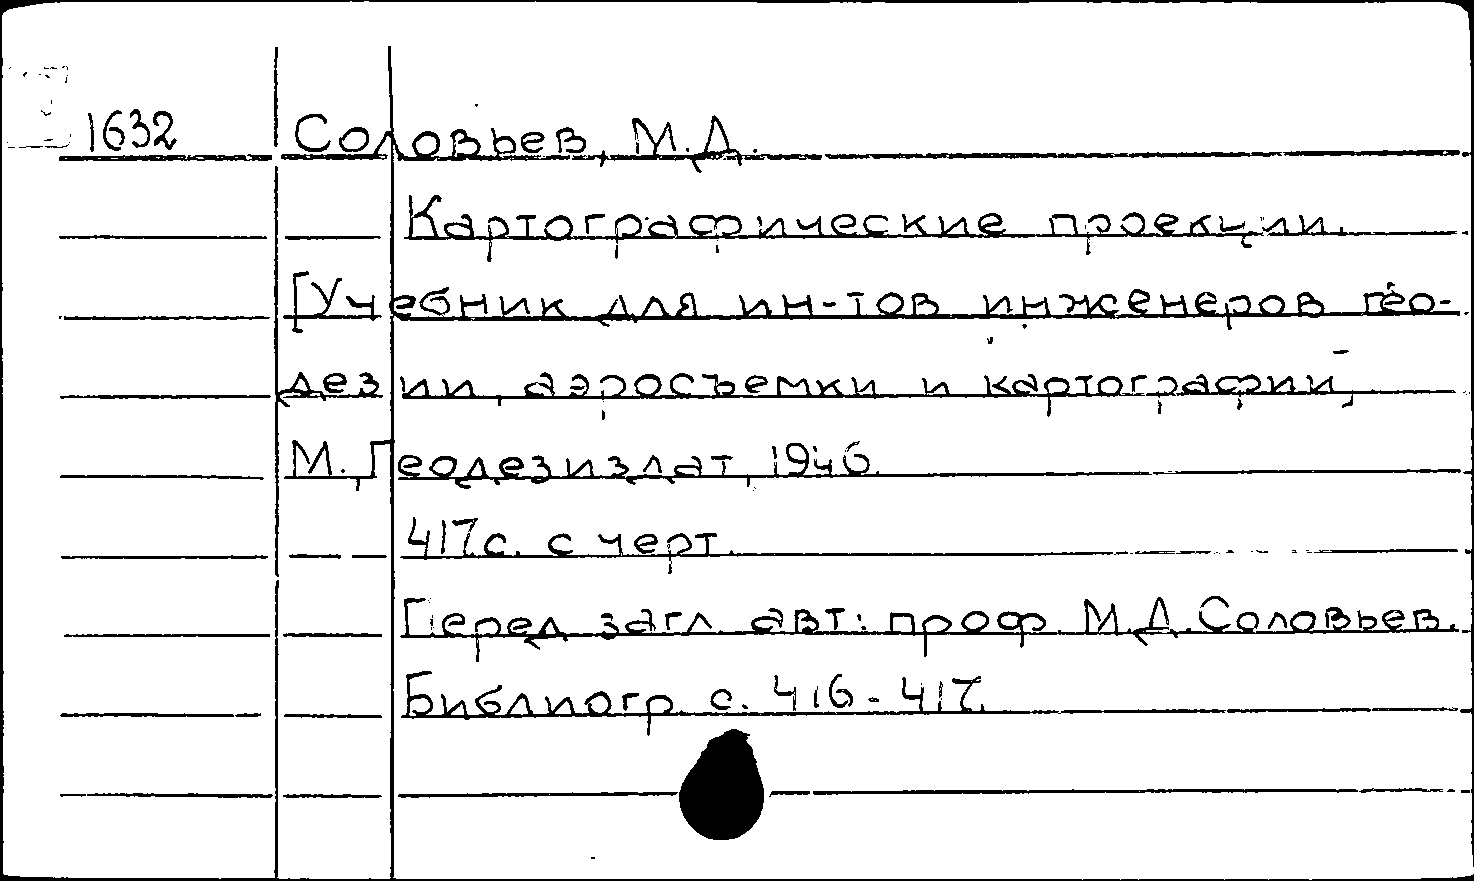 1632 Соловьев, М.Д.
Картографические проекции.
[Учебник для ин-тов инженеров гео-
дезии, аэросъемки и картографии,
М., Геодезиздат, 1946.
417с. с черт.
Перед загл. авт: проф М.Д.Соловьев.
Библиогр. с. 416-417.